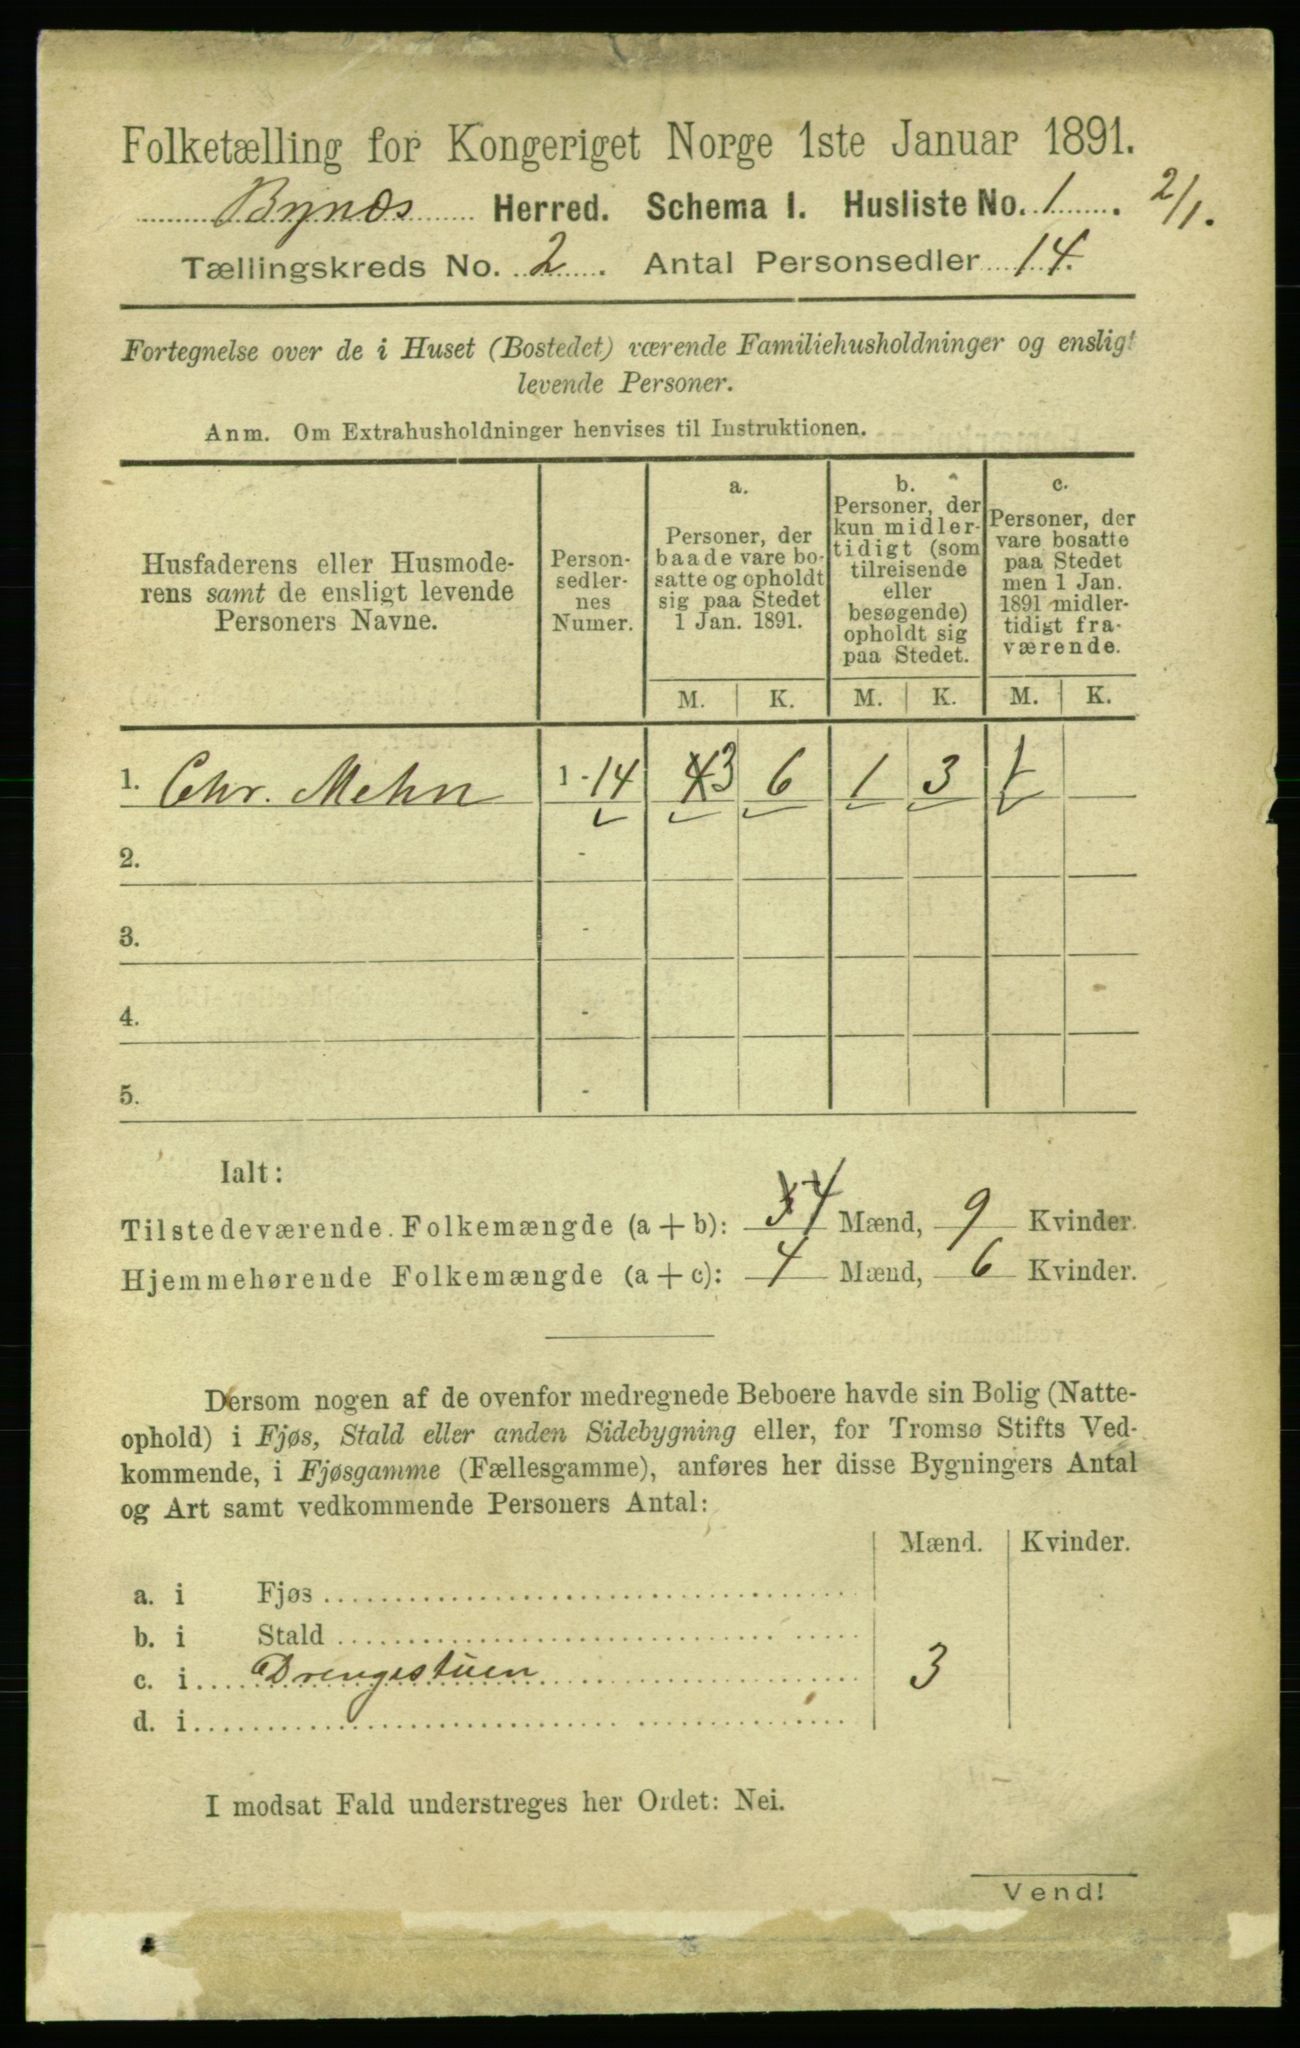 Folketælling for Kongeriget Norge 1ste Januar 1891.
Bynæs Herred. Schema I. Husliste No. 1. 2/1.
Tællingskreds No. 2. Antal Personsedler 14.
Fortegnelse over de i Huset (Bostedet) værende Familiehusholdninger og ensligt
levende Personer.
Anm. Om Extrahusholdninger henvises til Instruktionen.
Husfaderens eller Husmode-
rens samt de ensligt levende
Personers Navne.
Person-
sedler-
nes
Numer.
a.
Personer, der
baade vare bo-
satte og opholdt
sig paa Stedet
1 Jan. 1891.
b.
Personer, der
kun midler-
tidigt (som
tilreisende
eller
besøgende)
opholdt sig
paa Stedet.
c.
Personer, der
vare bosatte
paa Stedet
men 1 Jan.
1891 midler-
tidigt fra-
værende.
M. K. M. K. M. K.
1. Chr. Mehn 1-14 4 3 6 1 3 1
2. -
3. -
4. -
5. -
Ialt:
Tilstedeværende Folkemængde (a + b): 4 Mænd, 9 Kvinder.
Hjemmehørende Folkemængde (a + c): 4 Mænd, 6 Kvinder.
Dersom nogen af de ovenfor medregnede Beboere havde sin Bolig (Natte-
ophold) i Fjøs, Stald eller anden Sidebygning eller, for Tromsø Stifts Ved-
kommende, i Fjøsgamme (Fællesgamme), anføres her disse Bygningers Antal
og Art samt vedkommende Personers Antal:
Mænd. Kvinder.
a. i Fjøs
b. i Stald
c. i Drengestuen 3
d. i
I modsat Fald understreges her Ordet: Nei.
Vend!